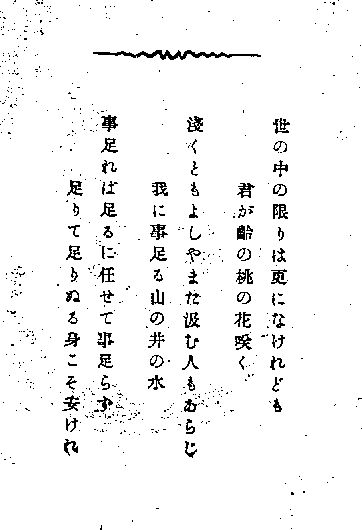 世の中の限りは更になけれども
君が齢の桃の花咲く
淺くともよしやまた汲む人もあらじ
我に事足る山の井の水
事足れば足るに任せて事足らず
足りて足りぬる身こそ安けれ